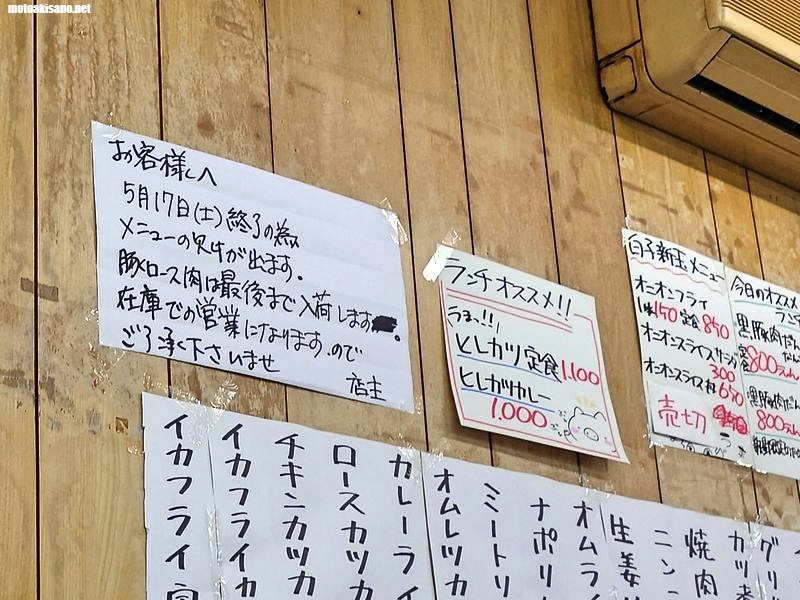 motoakisano.net
お客様へ
5月17日(土)終了の為
メニューの欠けが出ます。
豚ロース肉は最後まで入荷します。
在庫での営業になります。ので
ご了承下さいませ
店主
ランチオススメ!!
うまっ!!
ヒレカツ定食 1.100
ヒレカツカレー
1.000
白子新玉メニュー
オニオンフライ
1本150 定食850
オニオンスライス
300
オニオンスライス 650
売切
今日のオススメ
黒豚肉だん
800えん
黒豚肉だん
800えん
イカフライ
イカフライカ
チキンカツカ
ロースカツカ
カレーライ
オムレツカ
ミートリ
ナポリ
オムライ
生姜
ニン
焼肉
カツ
グリ